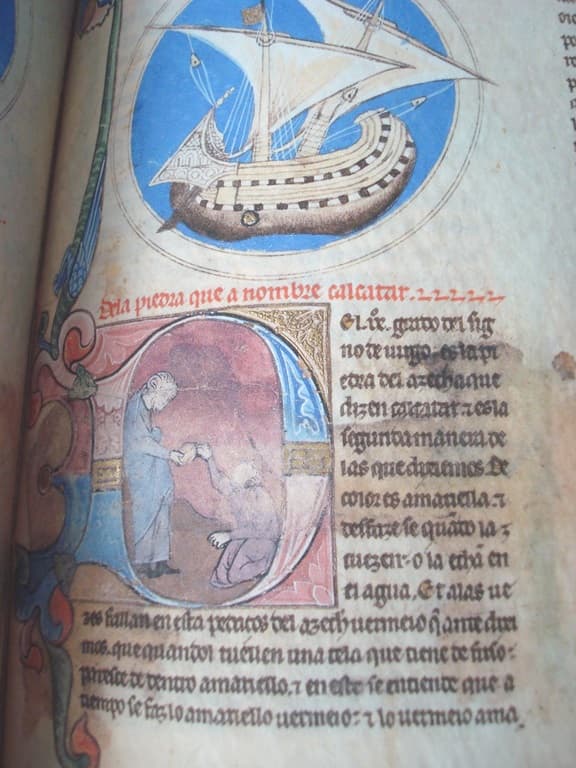 Dela piedra que a nombre calcatar.
El .ix. grado del sig
no de uirgo. es la pi
edra del azech a que
dizen calcatar ⁊ es la
segunda manera de
las que dixiemos. De
color es amariella. ⁊
desfaze se quãdo la
cuezen. o la echã en
el agua. Et alas ue
zes fallan en esta pedaços del azech uermeio q̃ ante dixi
mos. que quandol tuellen una tela que tiene de suso.
paresce de dentro amariello. ⁊ en esto se entiende que a
tiempo se faz lo amariello uermeio. ⁊ lo uermeio ama